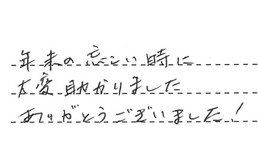 年末の忘しい時に
大変助かりました
ありがとうございました!